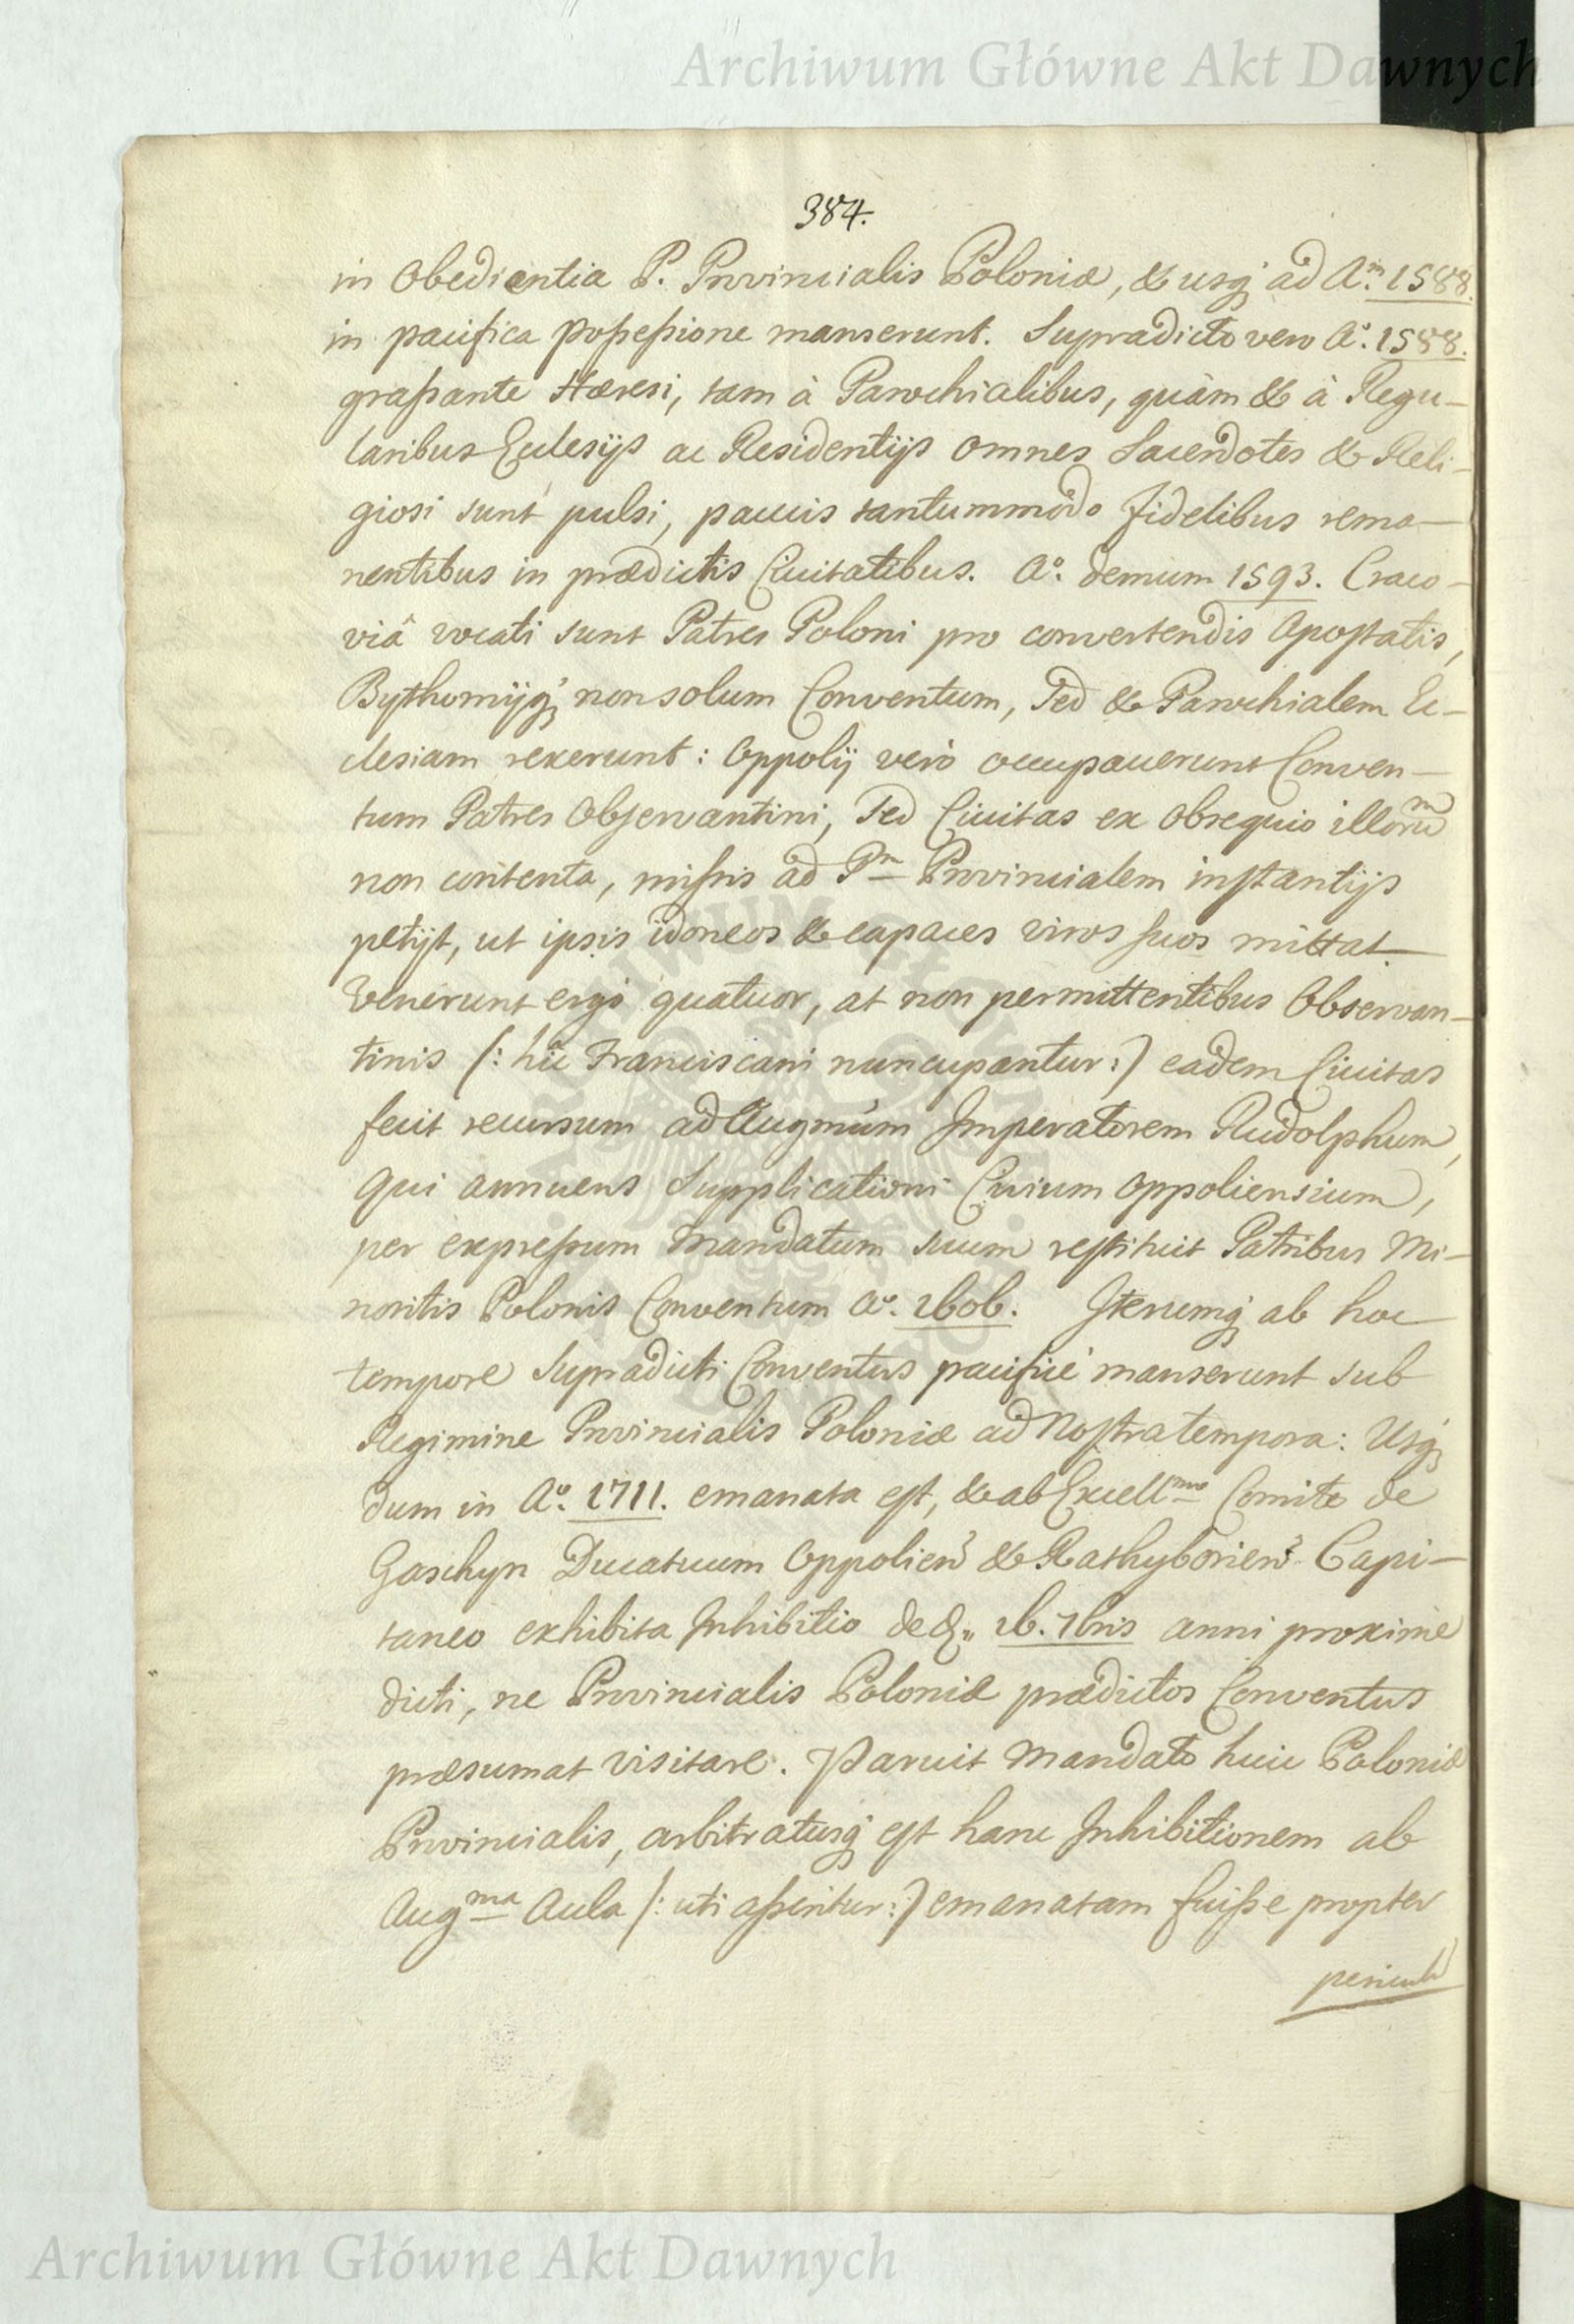 Archiwum Główne Akt Dawnych
384.
in Obedientia P. Provincialis Poloniæ, & usq; ad A.m 1588.
in pacifica Poßeßione manserunt. Supradicto vero A.o 1588.
graßante Hæresi, tam à Parochialibus, quàm & à Regu-
laribus Ecclesijs ac Residentijs omnes Sacerdotes & Reli-
giosi sunt pulsi, paucis tantummodo fidelibus rema-
nentibus in prædictis Civitatibus. A.o demum 1593. Craco-
viâ vocati sunt Patres Poloni pro convertendis Apostatis,
Bythomijq; non solum Conventum, sed & Parochialem Ec-
clesiam rexerunt: Oppolij verò occupauerunt Conven-
tum Patres Observantini, sed Ciuitas ex obsequio illorum
non contenta, mißis ad P.m Provincialem instantijs
petijt, ut ipsis idoneos & capaces viros suos mittat
Venerunt ergò quatuor, at non permittentibus Observan-
tinis (: hic Franciscani nuncupantur:) eadem Ciuitas
fecit recursum ad Augmum Imperatorem Rudolphum,
qui annuens Supplicationi Civium Oppoliensium,
per expreßum Mandatum suum restituit Patribus Mi-
noritis Polonis Conventum A.o 1606. Iterumq; ab hoc
tempore Supradicti Conventus pacificè manserunt sub
Regimine Provincialis Poloniæ ad Nostra tempora: Usq;
dum in A.o 1711. emanata est, & ab Excellmo Comite de
Gaschyn Ducatuum Oppolien & Rathyborien Capi-
taneo exhibita Inhibitio de d. 16. 7bris anni proximè
dicti, ne Provincialis Poloniæ prædictos Conventus
præsumat visitare. Paruit Mandato huic Poloniæ
Provincialis, arbitratusq; est hanc Inhibitionem ab
Augma Aula (: uti aßeritur:) emanatam fuiße propter
periculu
Archiwum Główne Akt Dawnych